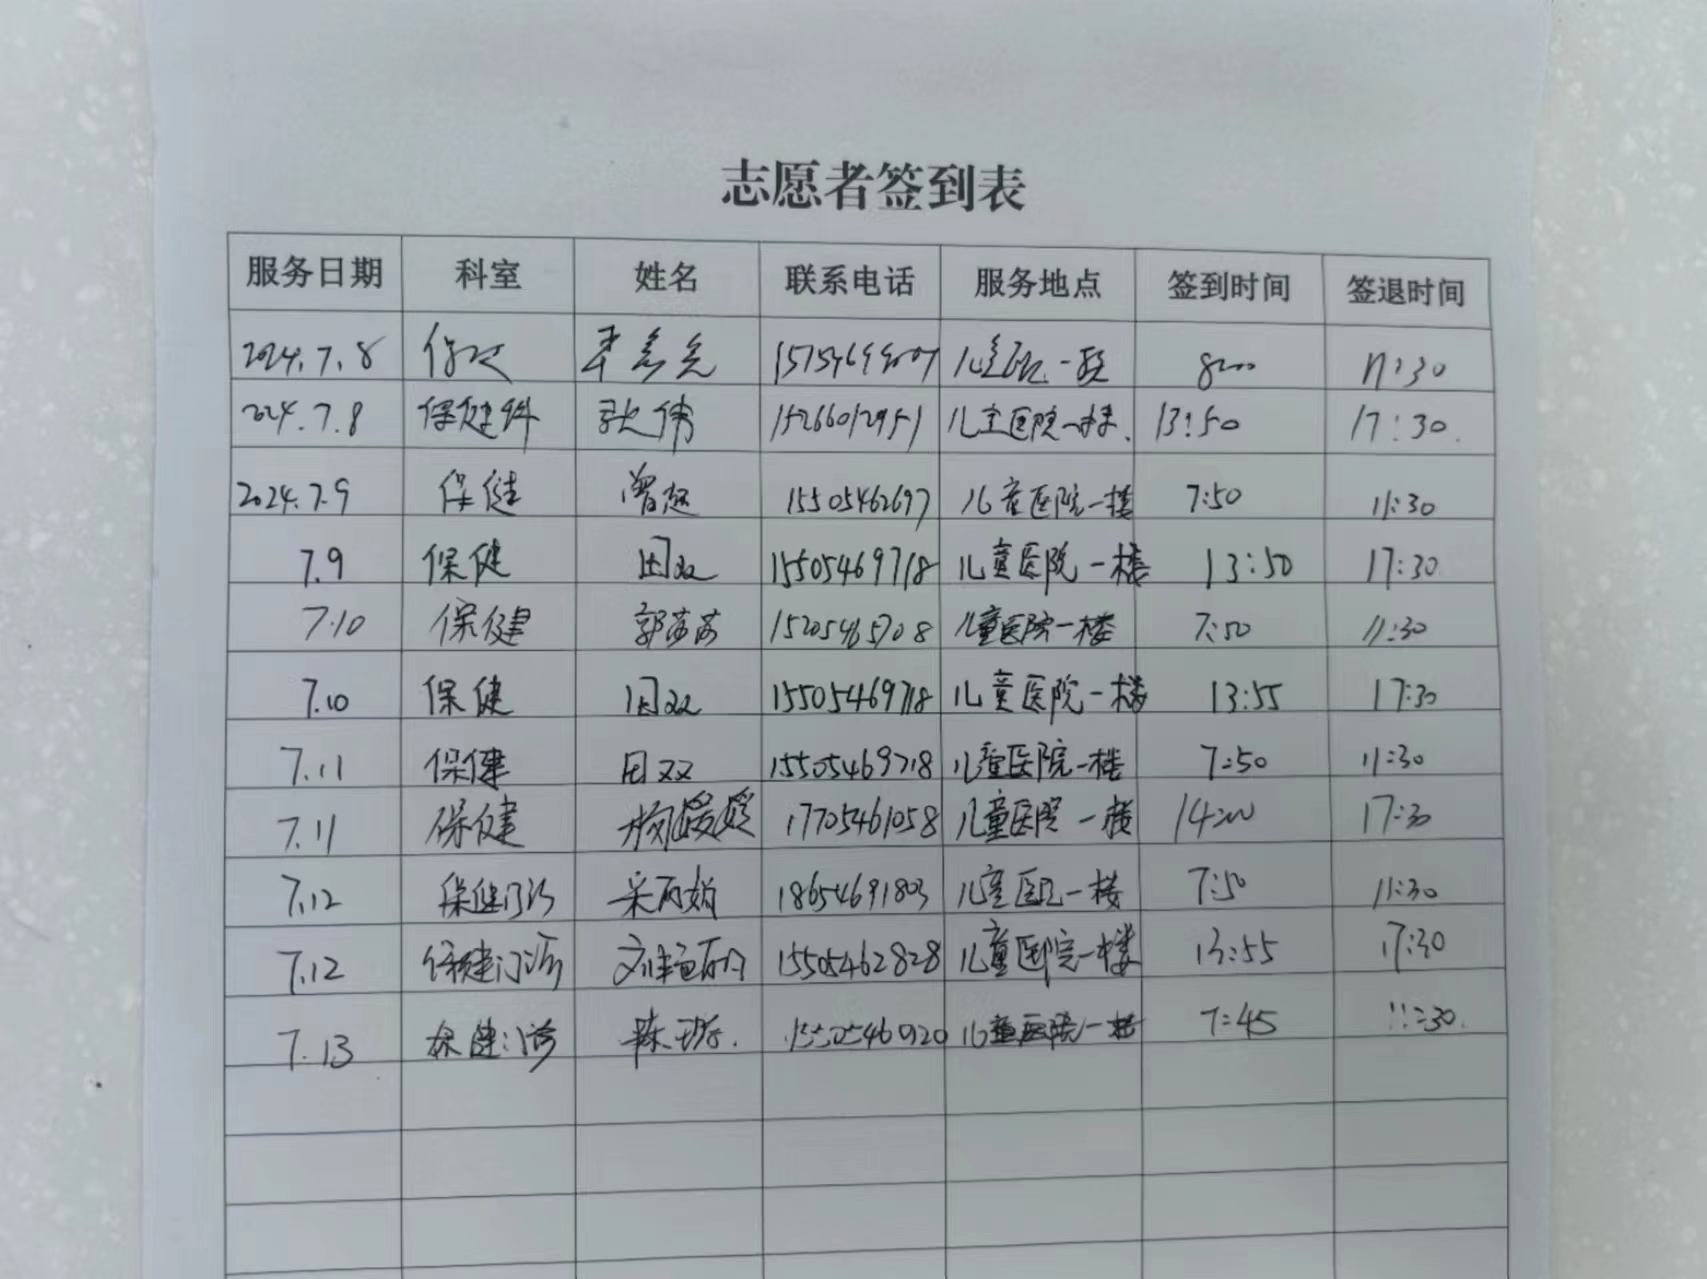 志愿者签到表
服务日期 科室 姓名 联系电话 服务地点 签到时间 签退时间
2024.7.8 8:00 11:30
2024.7.8 保健科 张伟 15266012951 儿童医院一楼. 13:50 17:30.
2024.7.9 保健 曾超 15505462697 儿童医院一楼 7:50 11:30
7.9 保健 田双 15505469718 儿童医院一楼 13:50 17:30
7.10 保健 郭莎莎 15205465708 儿童医院一楼 7:50 11:30
7.10 保健 田双 15505469718 儿童医院一楼 13:55 17:30
7.11 保健 田双 15505469718 儿童医院一楼 7:50 11:30
7.11 保健 杨媛媛 17705461058 儿童医院一楼 14:00 17:30
7.12 保健门诊 18654691803 儿童医院一楼 7:50 11:30
7.12 保健门诊 15505462828 儿童医院一楼 13:55 17:30
7.13 保健门诊 儿童医院一楼 7:45 11:30.